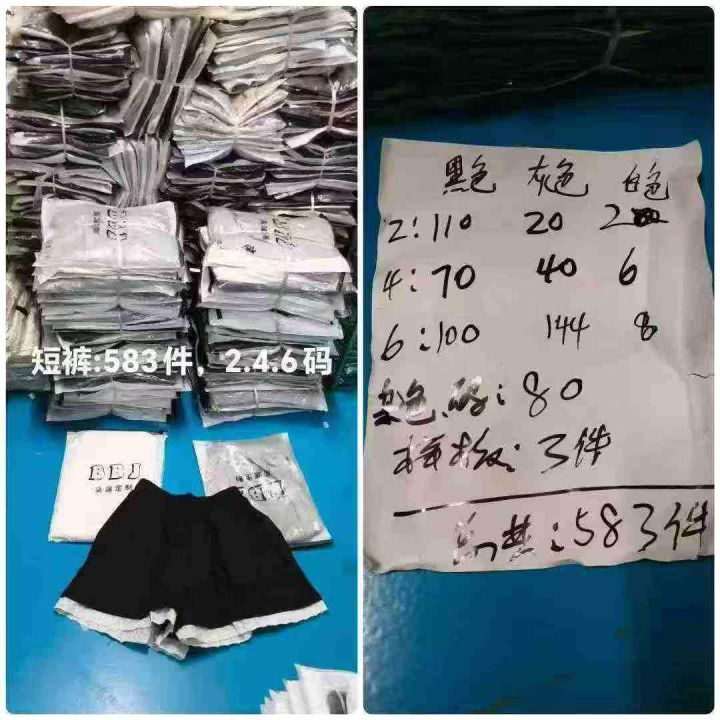 短裤:583件，2.4.6码
BBJ
高端定制
BBJ
黑色 灰色 白色
2:110 20 2
4:70 40 6
6:100 144 8
色.码:80
样板:3件
总共:583件